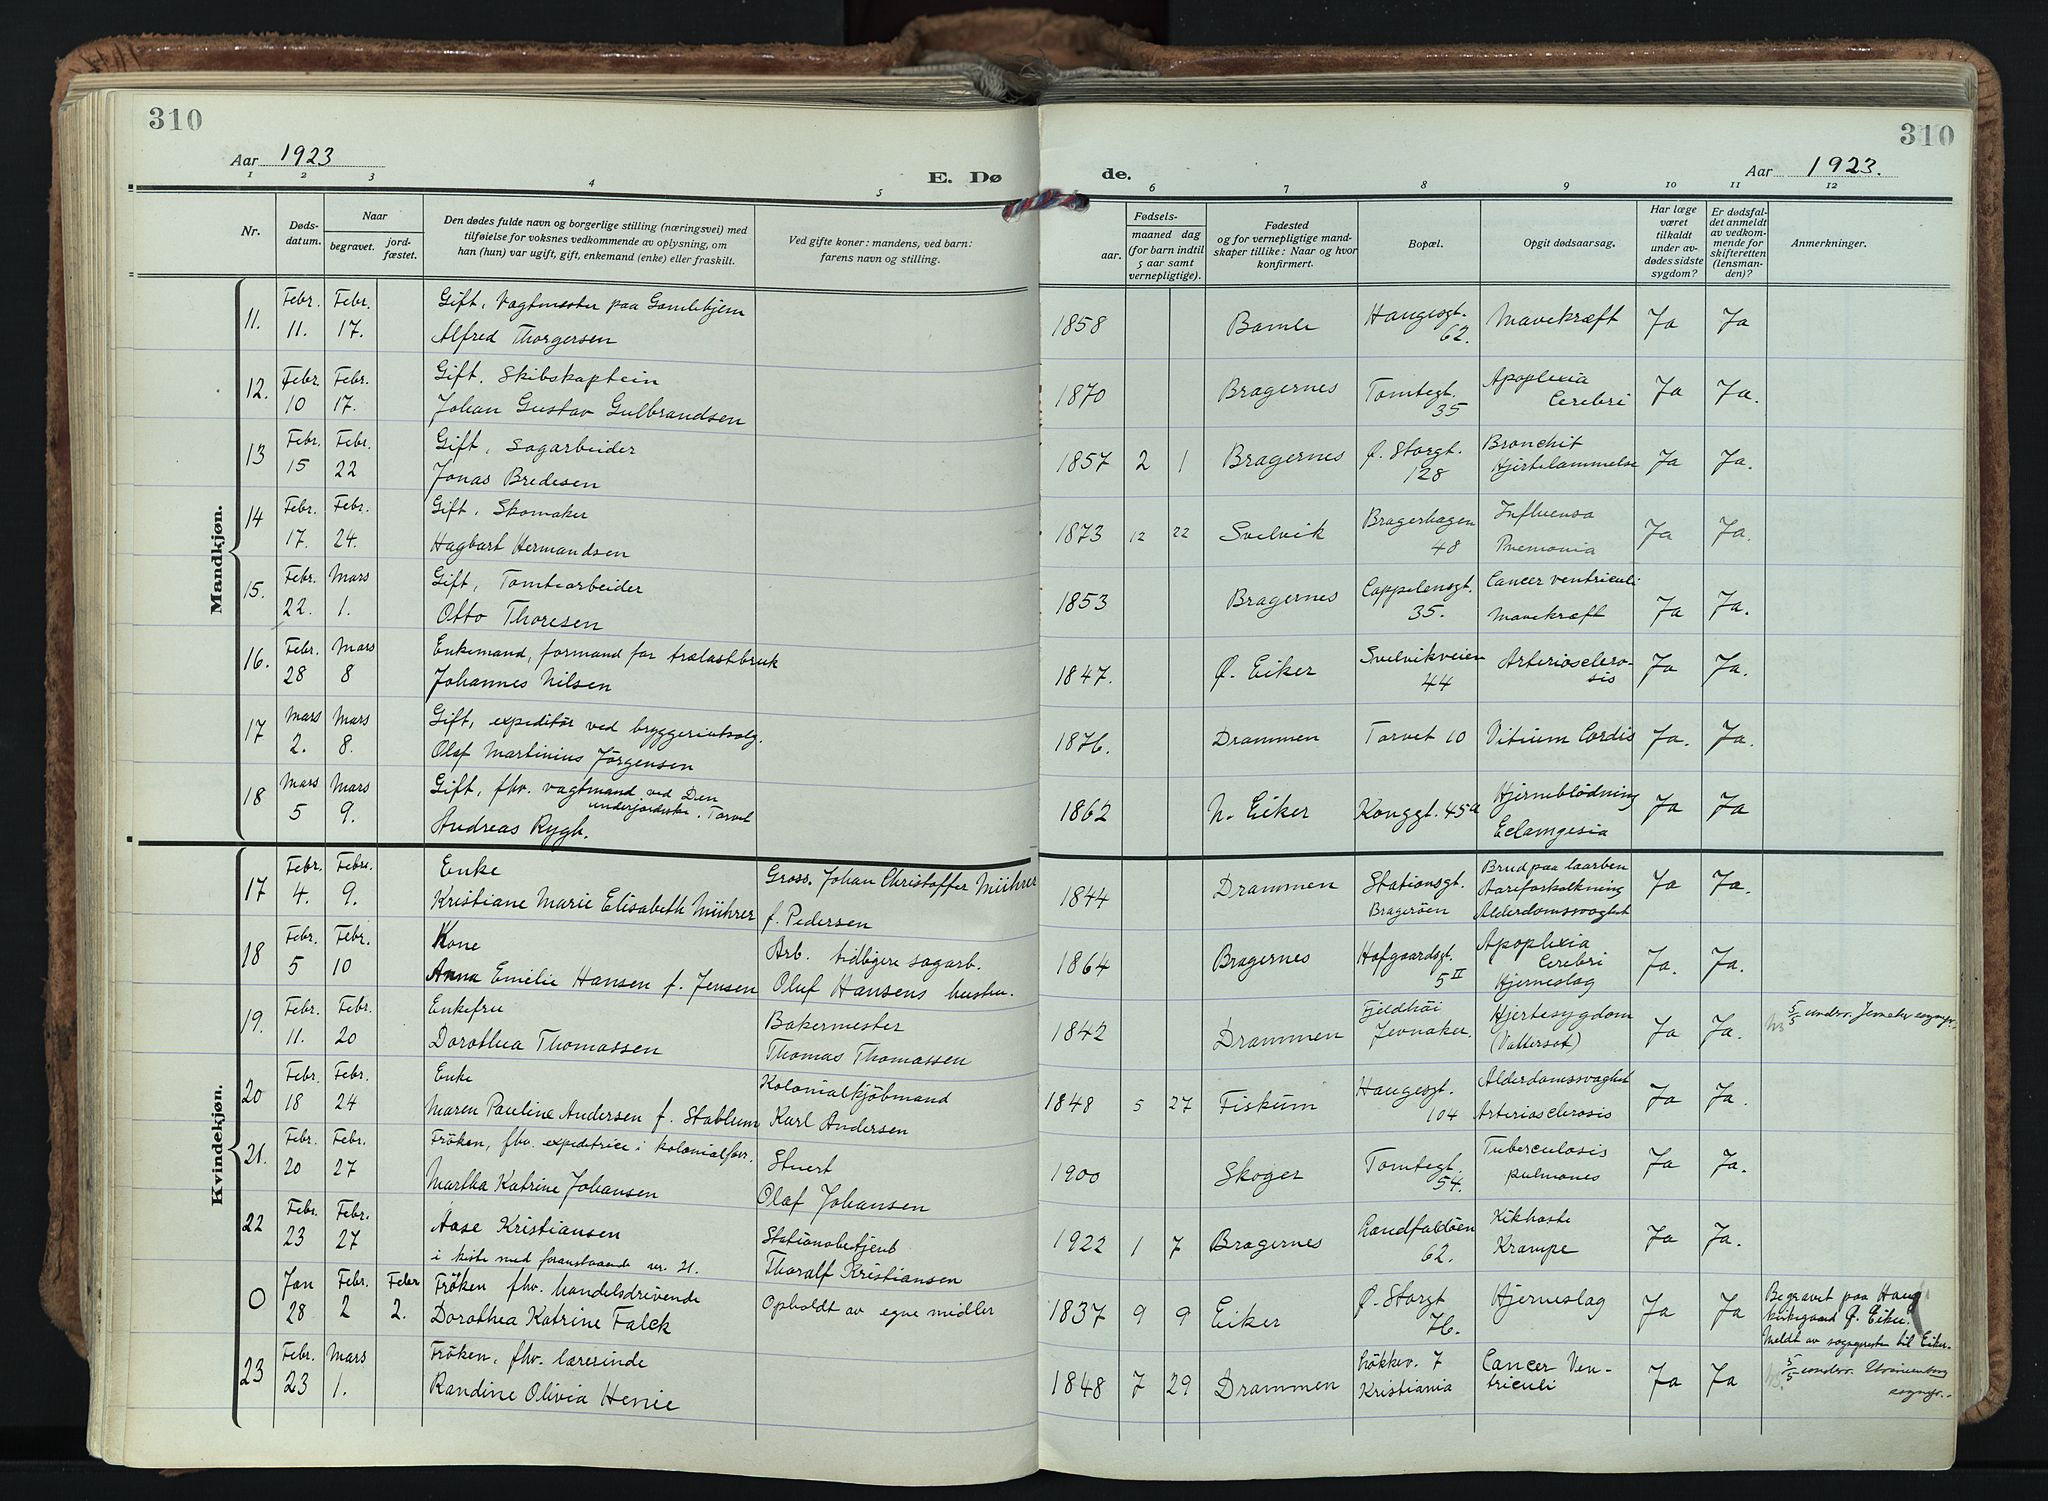 310
Aar 1923
E. Dø
1 2 3 4 5
Nr.
Døds-
datum.
Naar
begravet.
jord-
fæstet.
Den dødes fulde navn og borgerlige stilling (næringsvei) med
tilføielse for voksnes vedkommende av oplysning, om
han (hun) var ugift, gift, enkemand (enke) eller fraskilt.
Ved gifte koner: mandens, ved barn:
farens navn og stilling.
Mandkjøn.
11. Febr. Febr. Gift, Vagtmester paa Gamlehjem
11. 17. Alfred Thorgersen
12. Febr. Febr. Gift. Skibskaptein
10 17. Johan Gustav Gulbrandsen
13 Febr. Febr. Gift, Sagarbeider
15 22 Jonas Bredesen
14 Febr. Febr. Gift, Skomaker
17. 24. Hagbart Hermandsen
15. Febr. Mars Gift, Tomtearbeider
22. 1. Otto Thoresen
16. Febr. Mars Enkemand, formand for trælastbruk
28 8 Johannes Nilsen
17 Mars Mars Gift, expeditør ved bryggeriutsalg.
2. 8. Olaf Martinius Jørgensen
18 Mars Mars Gift, fhv. vagtmand ved Den
underjordiske, Torvet
5 9. Andreas Rygh.
Kvindekjøn.
17 Febr. Febr. Enke Gross. Johan Christoffer Mührer
4. 9. Kristiane Marie Elisabeth Mührer f. Pedersen
18 Febr. Febr. Kone Arb. tidligere sagarb.
5 10 Anna Emelie Hansen f. Jensen Oluf Hansens hustru.
19. Febr. Febr. Enkefru Bakermester
11. 20 Dorothea Thomassen Thomas Thomassen
20 Febr. Febr. Enke Kolonialkjøbmand
18 24 Maren Pauline Andersen f. Stablum Karl Andersen
21. Febr. Febr. Frøken, fhv. expeditrice i kolonialforr.
20 27 Martha Katrine Johansen Stuert
Olaf Johansen
22 Febr. Febr. Aase Kristiansen Stationsbetjent
23 27 i kiste med foranstaaende nr. 21. Thoralf Kristiansen
0 Jan Febr. Febr Frøken fhv. handelsdrivende Opholdt av egne midler
28 2 2. Dorothea Katrine Falck
23 Febr. Mars Frøken, fhv. lærerinde
23 1. Randine Olivia Henie
310
de.
Aar 1923.
6 7 8 9 10 11 12
Fødsels-
aar.
maaned dag
(for barn indtil
5 aar samt
vernepligtige).
Fødested
og for vernepligtige mand-
skaper tillike: Naar og hvor
konfirmert.
Bopæl.
Opgit dødsaarsag.
Har læge
været
tilkaldt
under av-
dødes sidste
sygdom?
Er dødsfal-
det anmeldt
av vedkom-
mende for
skifteretten
(lensman-
den)?
Anmerkninger.
1858 Bamle Haugesgt. 62. Mavekræft Ja Ja
1870 Bragernes Tomtegt. 35 Apoplexia Cerebri Ja Ja.
1857 2 1 Bragernes Ø. Storgt. 128 Bronchit Hjertelammelse Ja Ja.
1873 12 22 Svelvik Bragerhagen 48 Influensa Pnemonia Ja Ja.
1853 Bragernes Cappelensgt. 35. Cancer ventriculi Mavekræft Ja Ja.
1847. Ø. Eiker Svelvikveien 44 Arteriosclero-
sis Ja Ja.
1876. Drammen Torvet 10 Vitium Cordis Ja. Ja.
1862 N. Eiker Konggt. 45a Hjerneblødning Eclamgesia Ja Ja
1844 Drammen Stationsgt. Bragerøen Brud paa laarben Aareforkalkning Alderdomssvaghet Ja Ja.
1864 Bragernes Hofgaardsgt. 5 II Apoplexia Cerebri Hjerneslag Ja. Ja.
1842 Drammen Fjeldhøi Jevnaker. Hjertesygdom (Vattersot) Ja Ja. 5/5 underr. Jevnaker sogнepr.
1848 5 27 Fiskum Haugesgt. 104 Alderdomssvaghet Arteriosclerosis Ja Ja.
1900 Skoger Tomtegt. 54. Tuberculosis pulmones Ja Ja.
1922 1 7 Bragernes Landfaldøen 62. Kikhoste Krampe Ja Ja.
1837 9 9 Eiker Ø. Storgt 76. Hjerneslag Ja Ja Begravet paa Haug
kirkegaard Ø. Eiker.
Meldt av sognepresten til Eiker.
1848 7 29 Drammen Løkkev. 7 Kristiania Cancer Ven-
triculi Ja Ja 5/5 underr. Uranienborg
sognepr.